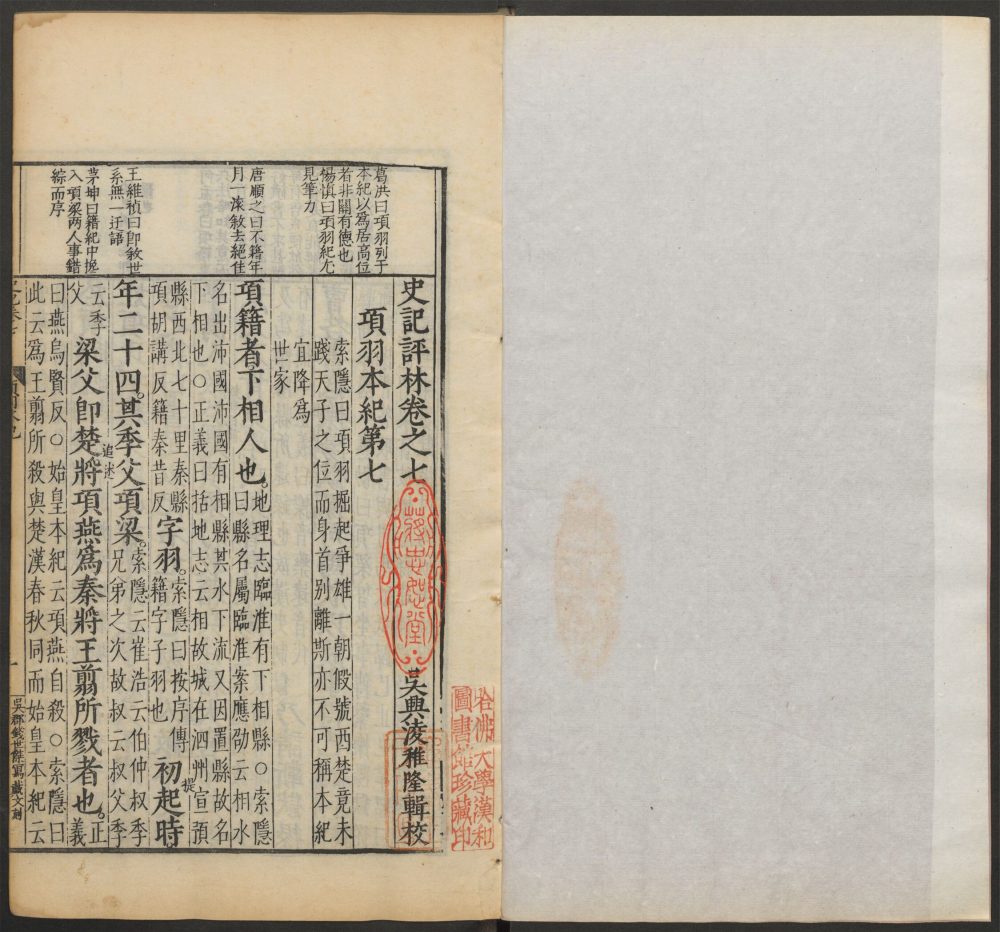 葛洪曰項羽列于
本紀以爲居高位
者非關有德也
楊慎曰項羽紀尤
見筆力
唐順之曰不籍年
月一滚敘去絕佳
王維楨曰卽敘世
系無一迂語
茅坤曰籍紀中攙
入項梁两人事錯
綜而序
史記評林卷之七
吳興淩稚隆輯校
項羽本紀第七
索隱曰項羽掘起爭雄一朝假號西楚竟未
踐天子之位而身首别離斯亦不可稱本紀
宜降爲
世家
項籍者下相人也。地理志臨淮有下相縣○索隱
曰縣名屬臨淮案應劭云相水
名出沛國沛國有相縣其水下流又因置縣故名
下相也○正義曰括地志云相故城在泗州宣預
縣西北七十里秦縣
項胡講反籍秦昔反
字羽。索隱曰按序傳
籍字子羽也
初起時
提
年二十四。其季父項梁。索隱云崔浩云伯仲叔季
兄弟之次故叔云叔父季
追述
云季
父
梁父卽楚將項燕爲秦將王翦所戮者也。正
義
曰燕烏賢反○始皇本紀云項燕自殺○索隱曰
此云爲王翦所殺與楚漢春秋同而始皇本紀云
一
哈佛大學漢和
圖書館珍藏印